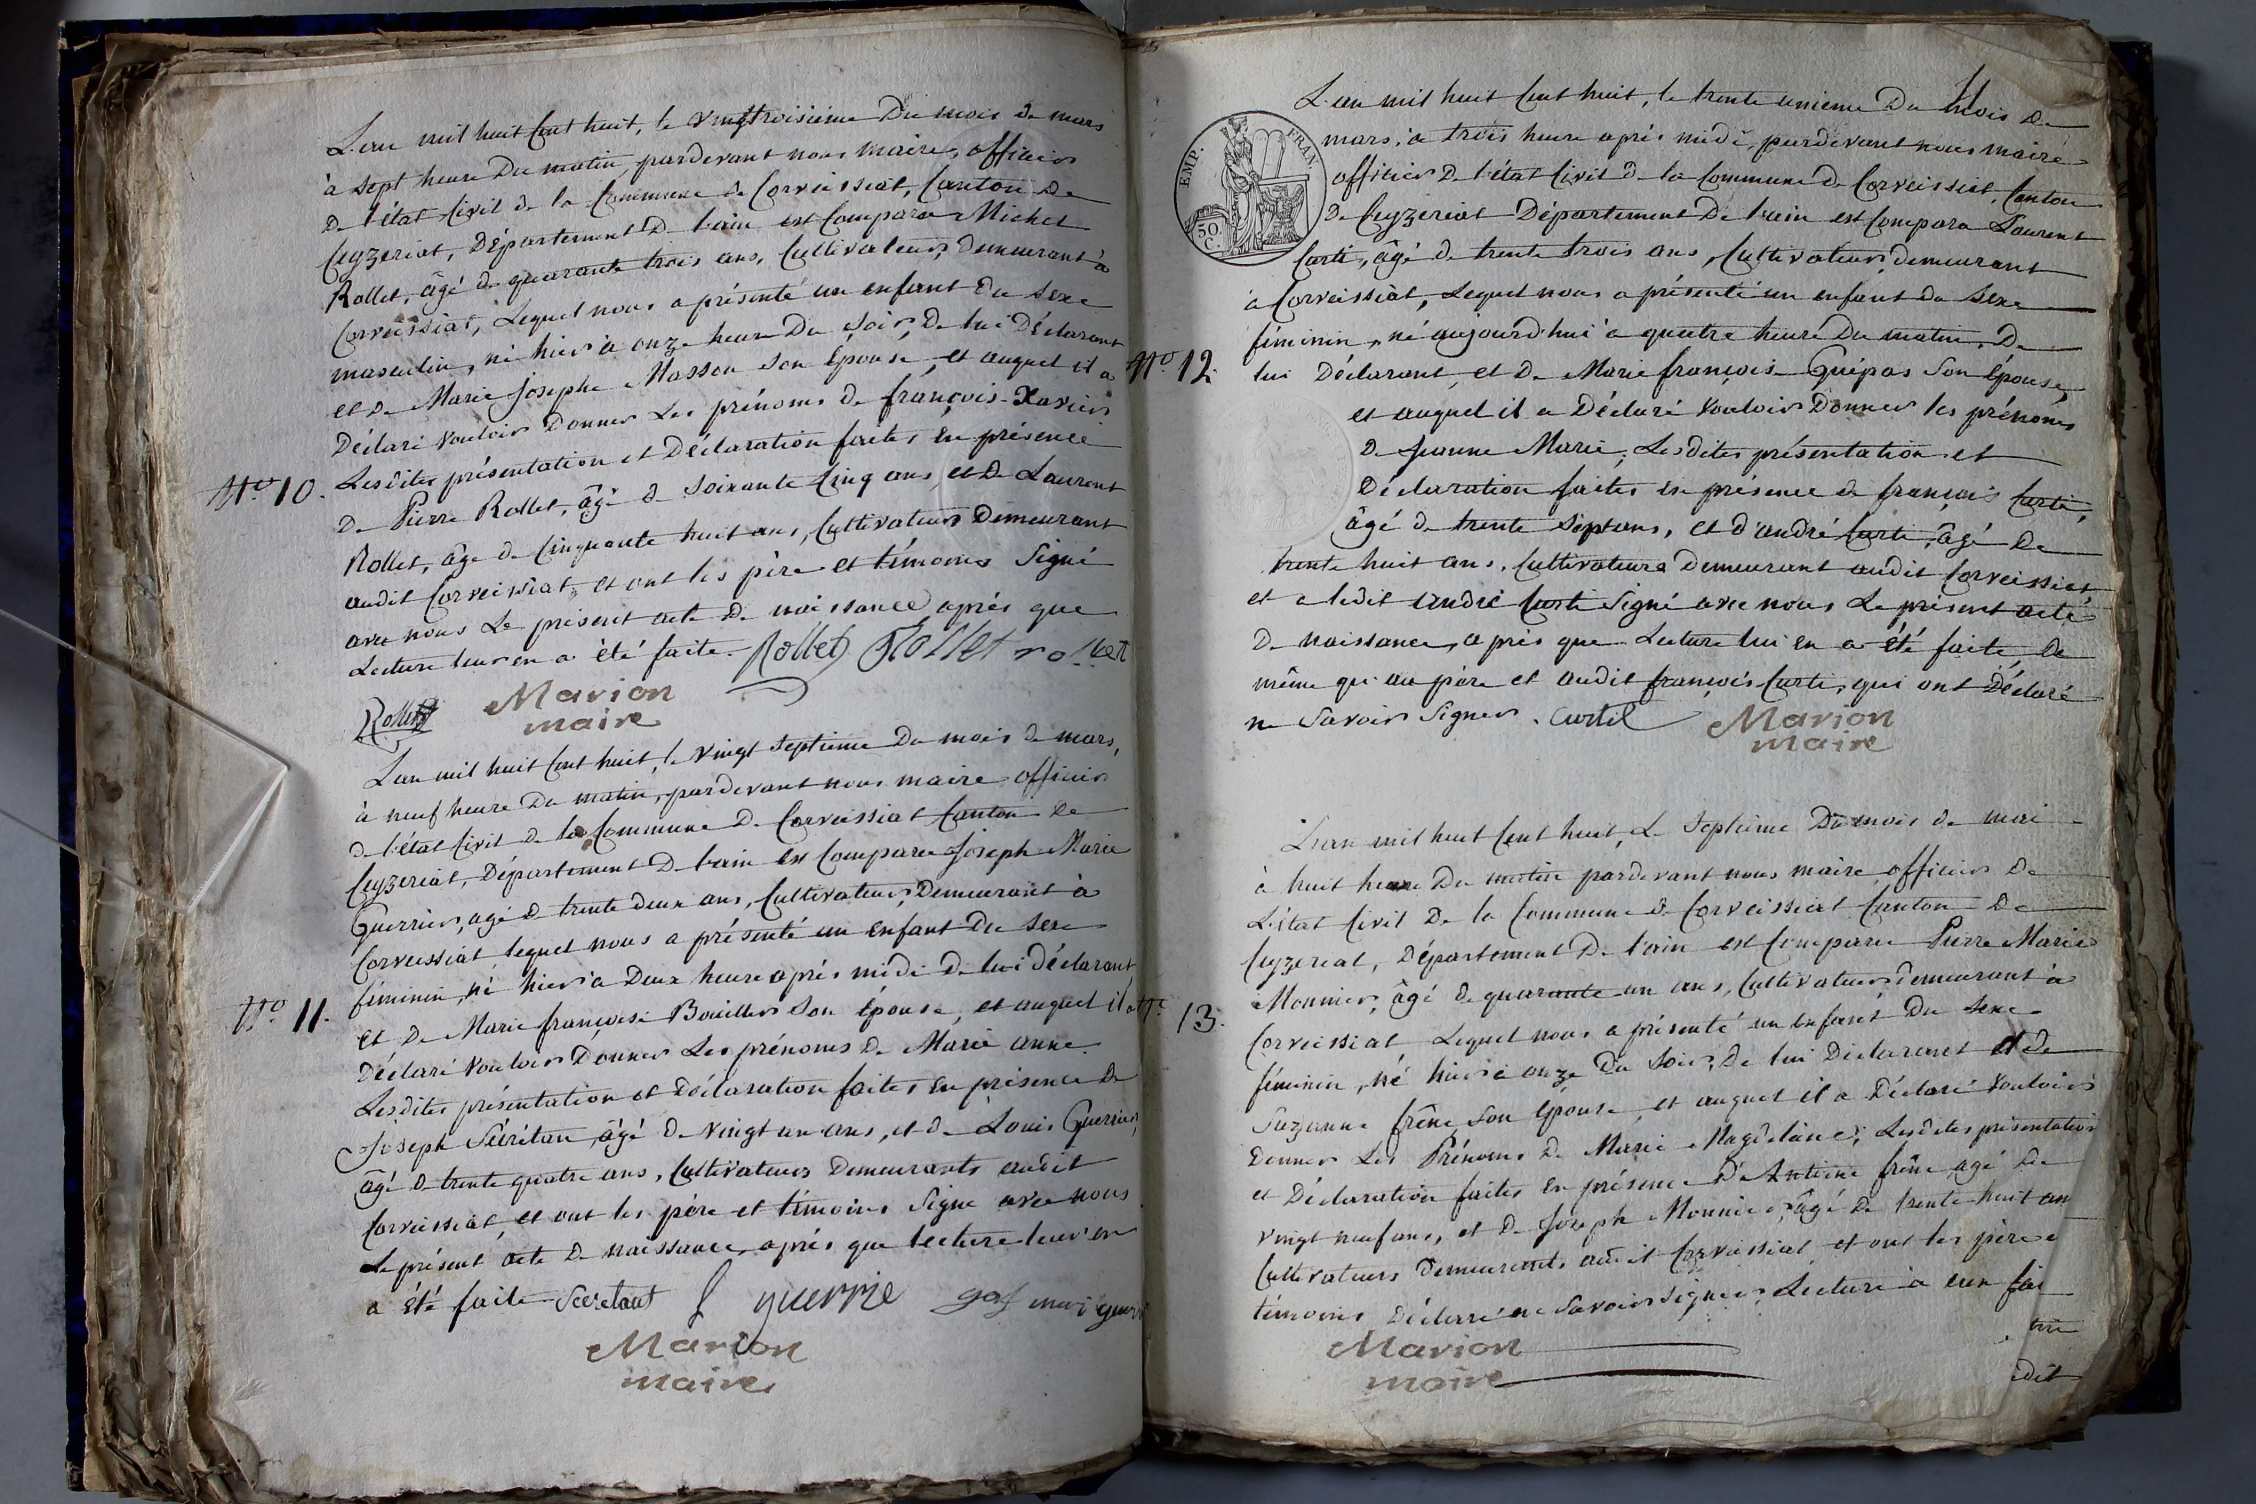 L'an mil huit Cent huit, le vingttroisième Du mois de mars
à sept heure Du matin, pardevant nous maire, officier
De l'état Civil de la Commune de Corveissiat, Canton De
Ceyzeriat, Département De l'ain est Comparu Michel
Rollet, âgé de quarante trois ans, Cultivateur, Demeurant à
Corveissiat, Lequel nous a présenté un enfant Du sexe
masculin, né hier à onze heure Du soir, De lui Déclarant
et De Marie Josephe Masson Son Épouse, et auquel il a
Déclaré vouloir Donner Les prénoms de françois-Xavier
N.o 10. Lesdites présentation et Déclaration faites En présence
De Pierre Rollet, âgé de soixante Cinq ans, et De Laurent
Rollet, âge de Cinquante huit ans, Cultivateurs Demeurant
audit Corveissiat, et ont les père et témoins Signé
avec nous Le présent acte De naissance après que
Lecture leur en a été faite. Rollet Rollet
Rollet Marion
maire
L'an mil huit Cent huit, le vingt Septième Du mois de mars,
à neuf heure Du matin, pardevant nous maire officier
De l'état Civil de la Commune De Corveissiat Canton De
Ceyzeriat, Département De l'ain est Comparu Joseph Marie
Guerrier, agé de trente deux ans, Cultivateur, Demeurant à
Corveissiat, lequel nous a présenté un Enfant Du Sexe
féminin, né hier à Deux heure après midi De lui déclarant
N.o 11. et De Marie françoise Bouiller Son Épouse, et auquel il a
Déclaré Vouloir Donner Les prénoms De Marie anne.
Lesdites présentation et Déclaration faites En présence De
Joseph Sécrétan, âgé De vingt un ans, et de Louis Guerrier,
âgé De trente quatre ans, Cultivateurs Demeurants audit
Corveissiat, et ont les père et témoins Signé avec nous
Le présent acte De naissance, après que lecture leur en
a été faite Secretant guerrie
Marion
maire
L'an mil huit Cent huit, le trente unieme Du Mois De
mars, à trois heure après midi, pardevant nous maire
EMP. FRAN
officier De l'état Civil De la Commune De Corveissiat, Canton
De Ceyzeriat Département De l'ain est Comparu Laurent
50 C.
Curti, âgé De trente trois ans, Cultivateur, demeurant
à Corveissiat, Lequel nous a présenté un enfant Du Sexe
féminin, né aujourd'hui à quatre heure Du matin, De
N.o 12. lui Déclarant, et De Marie françoise Guépas Son Épouse,
et auquel il a Déclaré Vouloir Donner les prénoms
De Jeanne Marie; Lesdites présentation et
Déclaration faites En présence de françois Curti,
âgé De trente Sept ans, et d'andré Curti, âgé De
trente huit ans, Cultivateurs Demeurant audit Corveissiat
et a ledit andré Curti Signé avec nous Le présent acte
De naissance, après que Lecture lui en a été faite, De
même qu'au père et audit françois Curti, qui ont Déclaré
ne Savoir Signer. Curtil Marion
maire
L'an mil huit Cent huit, Le Septième Du mois de mai
à huit heure Du matin pardevant nous maire officier De
L'état Civil De la Commune De Corveissiat Canton De
Ceyzeriat, Département De l'ain est Comparu Pierre Marie
Monnier, âgé de quarante un ans, Cultivateur demeurant à
N.o 13. Corveissiat Lequel nous a présenté un Enfant Du Sexe
féminin, né hier à onze Du Soir, De lui Déclarant et de
Suzanne frêne Son Épouse, et auquel il a Déclaré Vouloir
Donner Les Prénoms De Marie Magdelaine; Lesdites présentation
et Déclaration faites En présence D'Antoine frêne, agé De
vingt neuf ans, et De Joseph Monnier, âgé De trente huit an
Cultivateurs Demeurants audit Corveissiat et ont les père e
témoins Déclaré ne Savoir Signer, Lecture à eux fai
Marion
maire